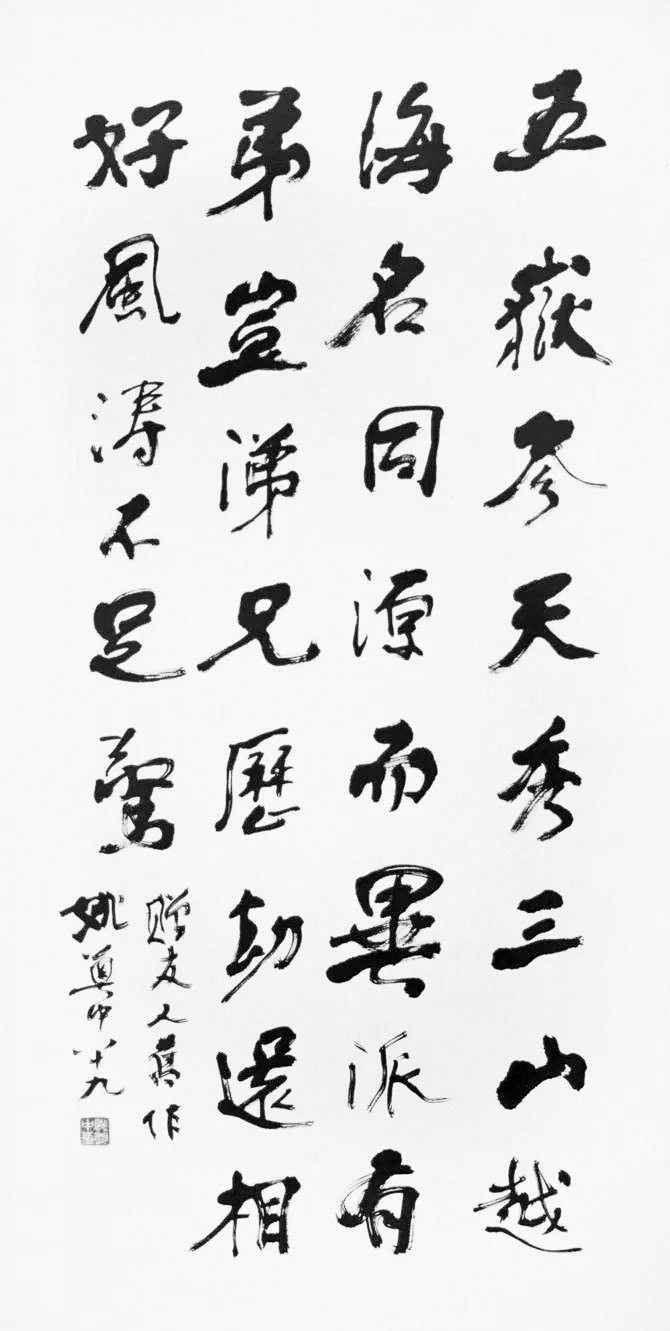 五嶽参天秀三山越
海名同源而異派有
弟豈涕兄歷劫還相
好風涛不足驚
贈友人舊作
姚奠中八十九